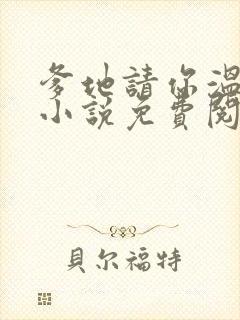 爹地請你溫
小說免費閱
貝尔福特